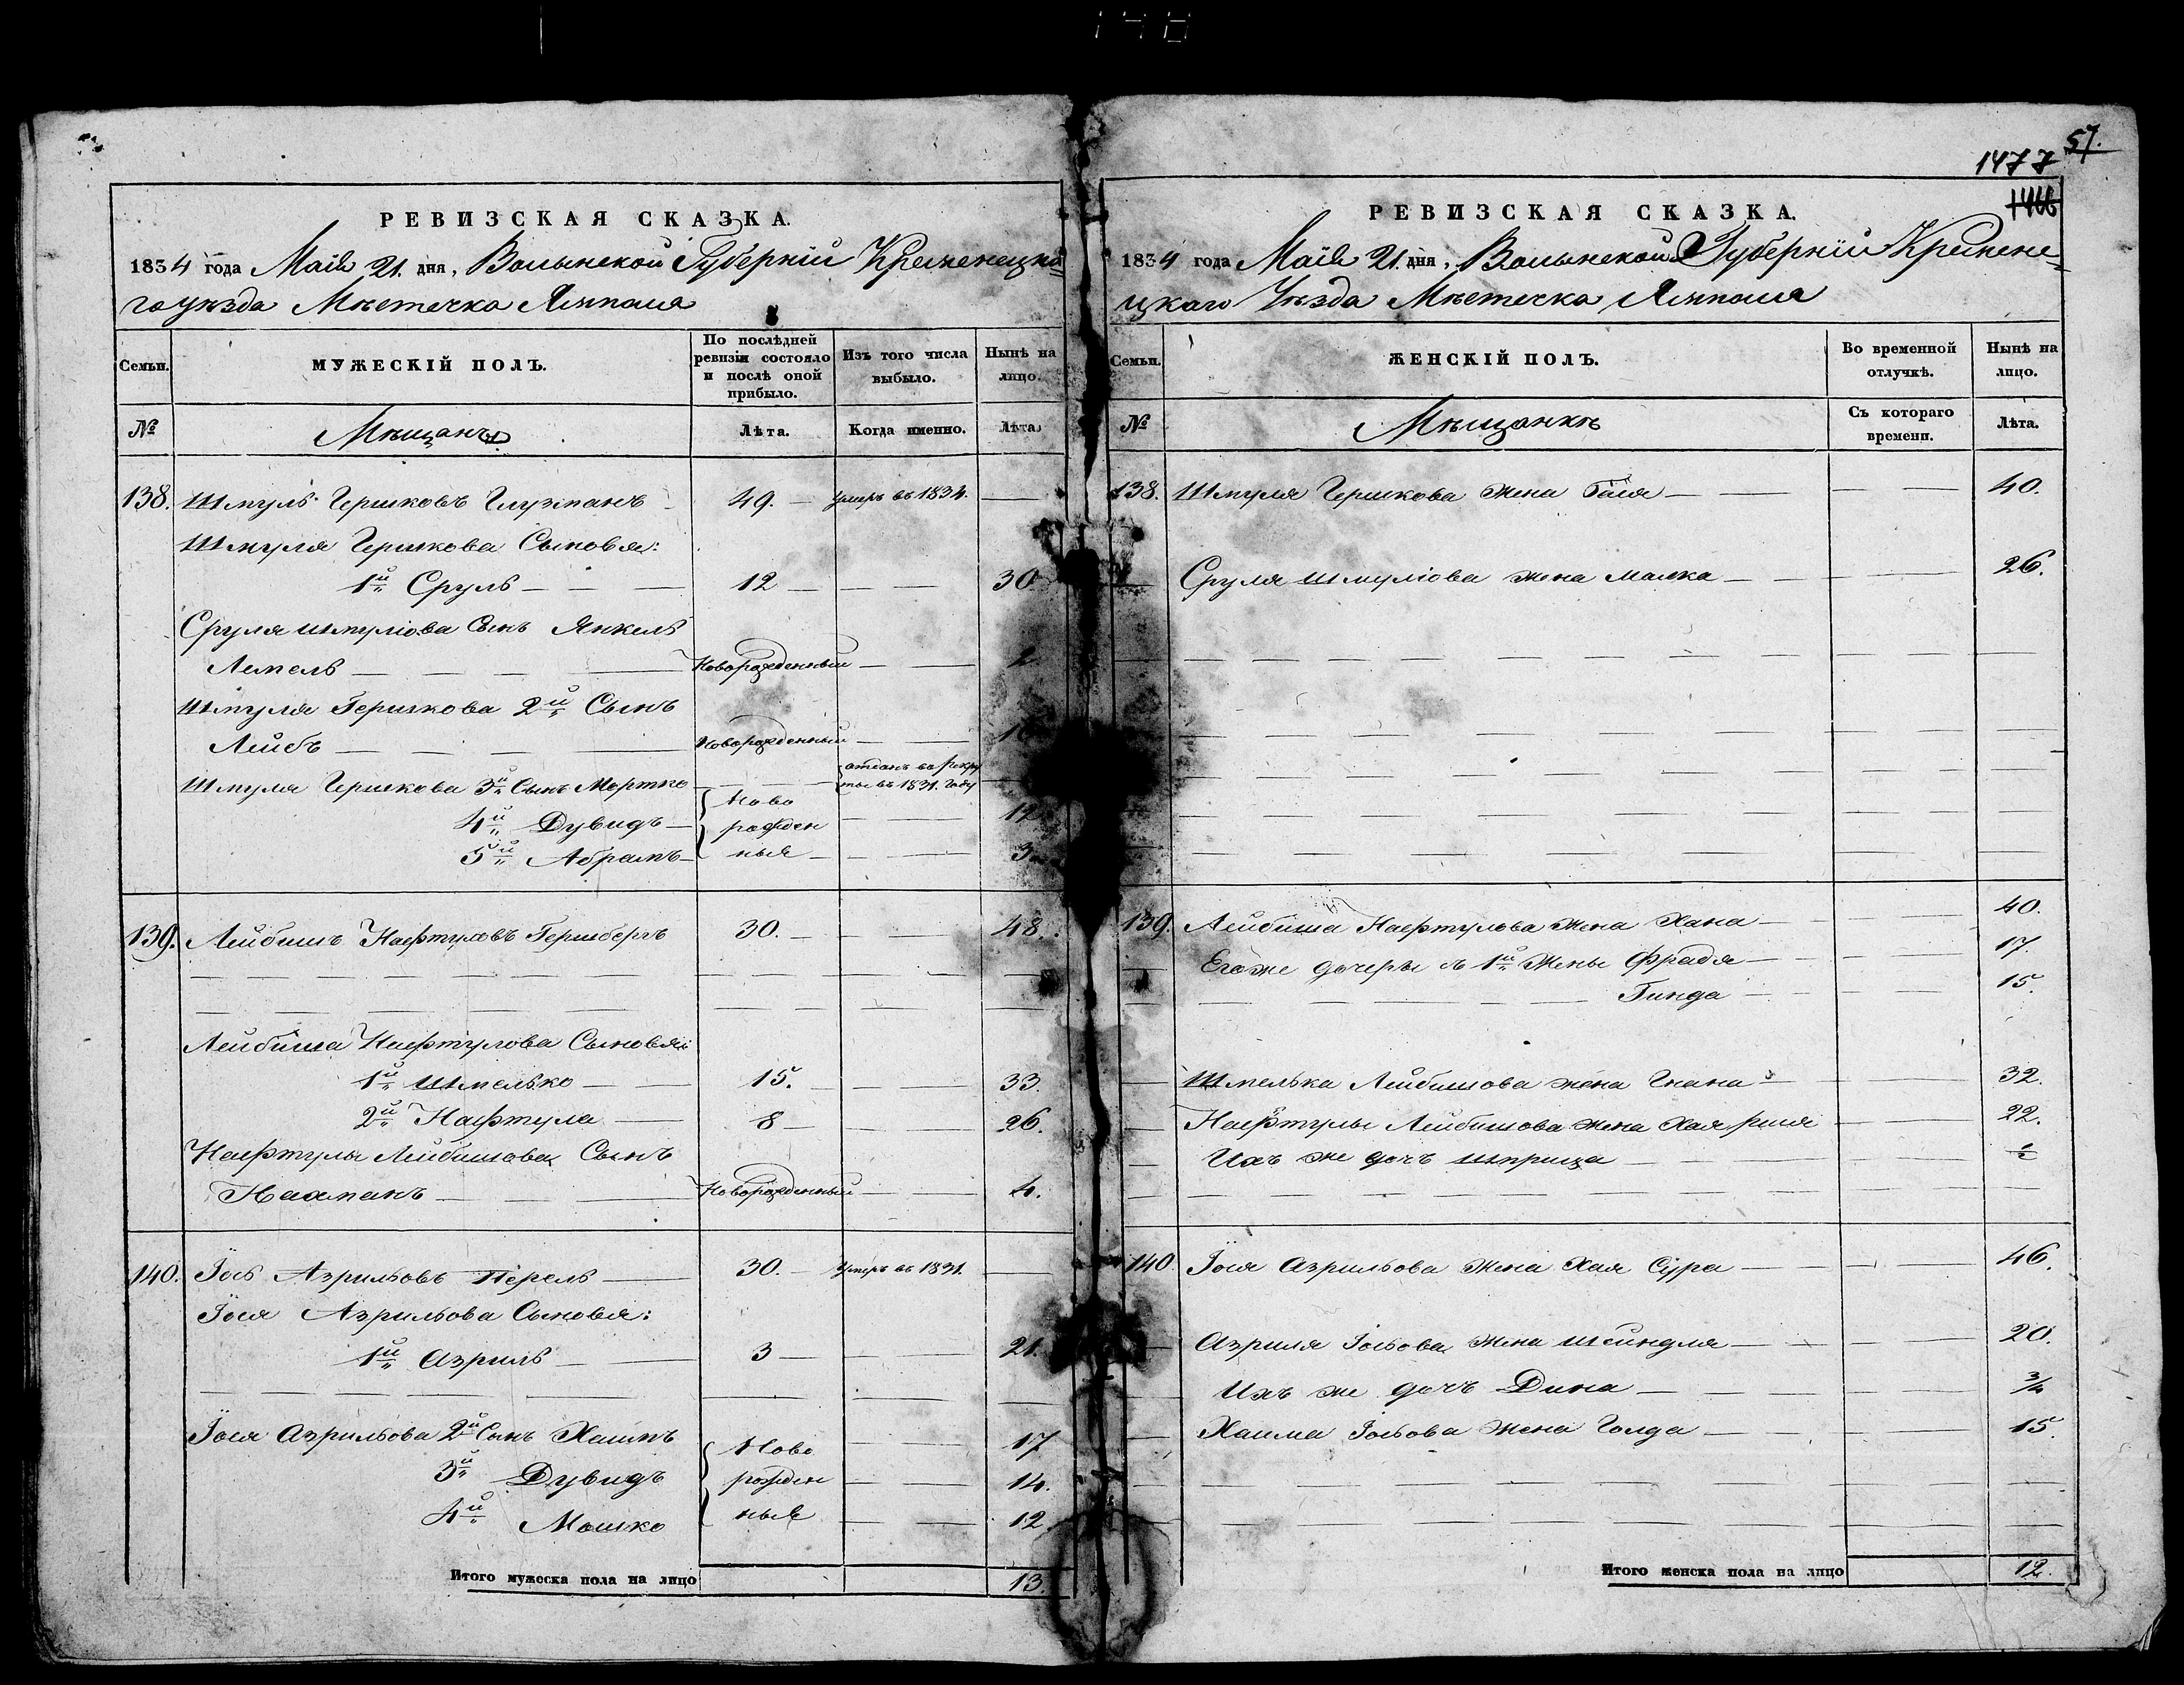 57.
1477
1466
РЕВИЗСКАЯ СКАЗКА.
1834 года Маія 21. дня, Волынской Губерніи Кременецка=
го уѣзда Мѣстечка Ямпола
Семьи. МУЖЕСКІЙ ПОЛЪ. По послѣдней ревизіи состояло и послѣ оной прибыло. Изъ того числа выбыло. Нынѣ на лицо.
№ Мѣщанъ Лѣта. Когда именно. Лѣта.
138. Шмуль Гершковъ Глузманъ 49. умеръ въ 1834.
Шмуля Гершкова Сыновья:
1й Сруль 12 30
Сруля Шмуліова Сынъ Янкель
Лемель Новорожденный 2
Шмуля Гершкова 2й Сынъ
Лейбъ Новорожденный
Шмуля Гершкова 3й Сынъ Мортко отданъ въ рекру
ты въ 1831. году
4й Дувидъ Ново 12
5й Абрамъ рожден
ныя 3
139. Лейбишъ Нафтуловъ Гершбергъ 30. 48.
Лейбиша Нафтулова Сыновья:
1й Шмелько 15. 33.
2й Нафтула 8 26.
Нафтулы Лейбишова Сынъ
Нахманъ Новорожденный 4.
140. Іось Азрильовъ Перель 30. Умеръ въ 1831.
Іося Азрильова Сыновья:
1й Азриль 3 21.
Іося Азрильова 2й Сынъ Хаимъ Ново 17
3й Дувидъ рожден 14.
4й Мошко ныя 12.
Итого мужеска пола на лицо 13.
РЕВИЗСКАЯ СКАЗКА.
1834 года Маія 21. дня, Волынской Губерніи Кремене=
цкаго Уѣзда Мѣстечка Ямпола
Семьи. ЖЕНСКІЙ ПОЛЪ. Во временной отлучкѣ. Нынѣ на лицо.
№ Мѣщанкѣ Съ котораго времени. Лѣта.
138. Шмуля Гершкова жена Бася 40.
Сруля Шмуліова жена Малка 26.
139. Лейбиша Нафтулова жена Хана 40.
Его же дочеры съ 1й жены Фрадя 17.
Гинда 15.
Шмелька Лейбишова жена Гнана 32.
Нафтулы Лейбишова жена Хая 22.
Ихъ же дочъ Шприца ½
140. Іося Азрильова жена Хая Сура 46.
Азриля Іосьова жена Шейндля 20.
Ихъ же дочъ Дина 3/4
Хаима Іосьова жена Голда 15.
Итого женска пола на лицо 12.